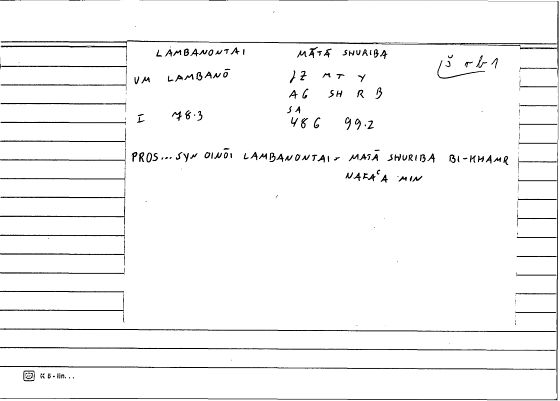 LAMBANONTAI MĀTĀ SHURIBA š r b 1
VM LAMBANŌ IZ M T Y
AG SH R B
SA
I 78.3 486 99.2
PROS... SYN OINŌI LAMBANONTAI - MATĀ SHURIBA BI-KHAMR
NAFAʿA MIN